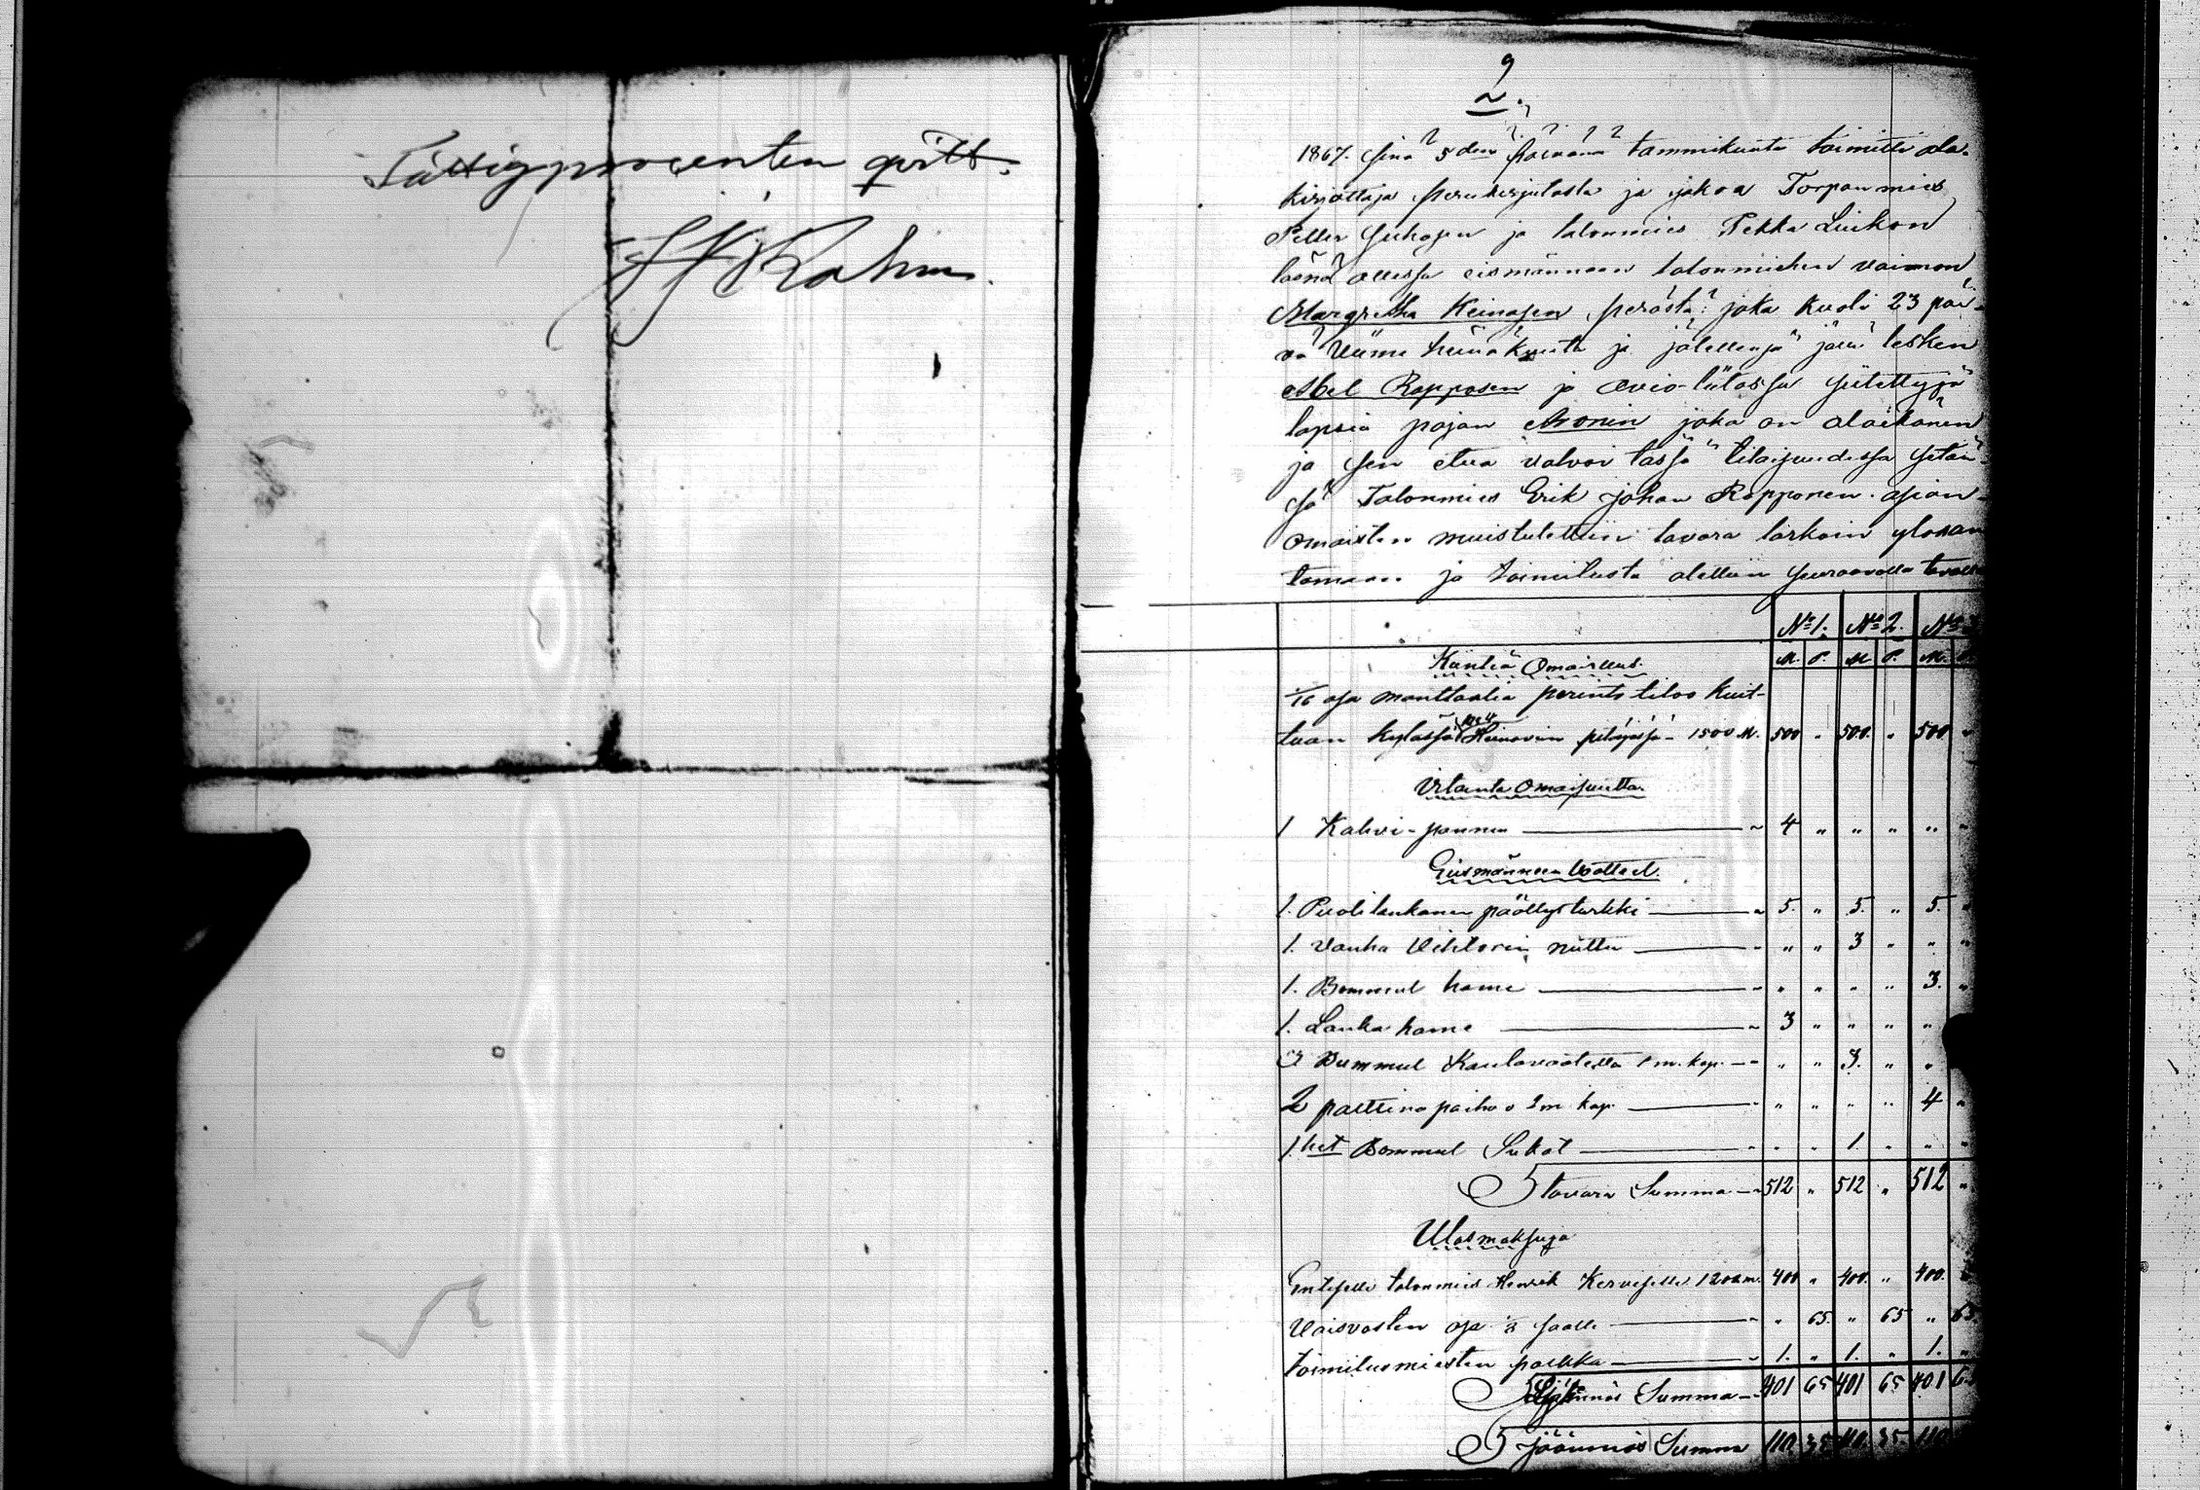 Fattigprocenten qvitt.
9
2.
1867. sinä 5den päivänä tammikuuta toimitti ala-
kirjottaja perukirjutosta ja jakoa Torpanmies
Petter Juhosen ja talonmies Pekka Liikon
läsnä ollessa eismännään talonmiehen vaimon
Margretha Heinosen perästä: joka kuoli 23 päi-
vä viime heinäkuuta ja jälellensä jätti lesken
Abel Ropposen ja avio-liitossa siitettyjä
lapsia pojan Aronin joka on alaikänen
ja sen etua valvoi tässä tilaisuudessa setän-
sä Talonmies Erik Johan Ropponen. asian-
omaisten muistutettiin tavara tarkoin ylösan-
tamaan ja toimitusta alettiin seuraavalla tavalla
No 1. No 2. No 3
M. P. M. P. M. P.
Kiintiä Omaisuus.
1/16 osa manttaalia perintö taloo kuit-
tuan kyläsä Heinäveen pitäjäsä - 1500 M. 500 " 500. " 500 "
Irtainta Omaisuutta.
1 Kahvi-pannu 4 " " " " "
Eismänneen Vaatteet.
1. Puolilankanen päällysturkki 5. " 5. " 5. "
1. Vanha Vihtorin nuttu " " 3 " " "
1. Bommul hame " " " " 3. "
1. Lanka hame 3 " " " " "
3 Bummul Kaulavaatetta 1 m. kap. " " 3. " "
2 palttina paitoo 2 m kap " " " " 4 "
1. het Bommul Sukat " " 1. " " "
Tavara Summa 512 " 512 " 512 "
Ulosmaksuja
Entiselle talonmies Henrik Kerviselle 1200 m. 400 " 400. " 400.
Vaivasten osa 1/8 saalle " 65. " 65 " 65.
toimitusmiesten palkka 1. " 1. " 1. "
Summa 401 65 401 65 401 65
Jäännös Summa 110 35 110. 35. 110